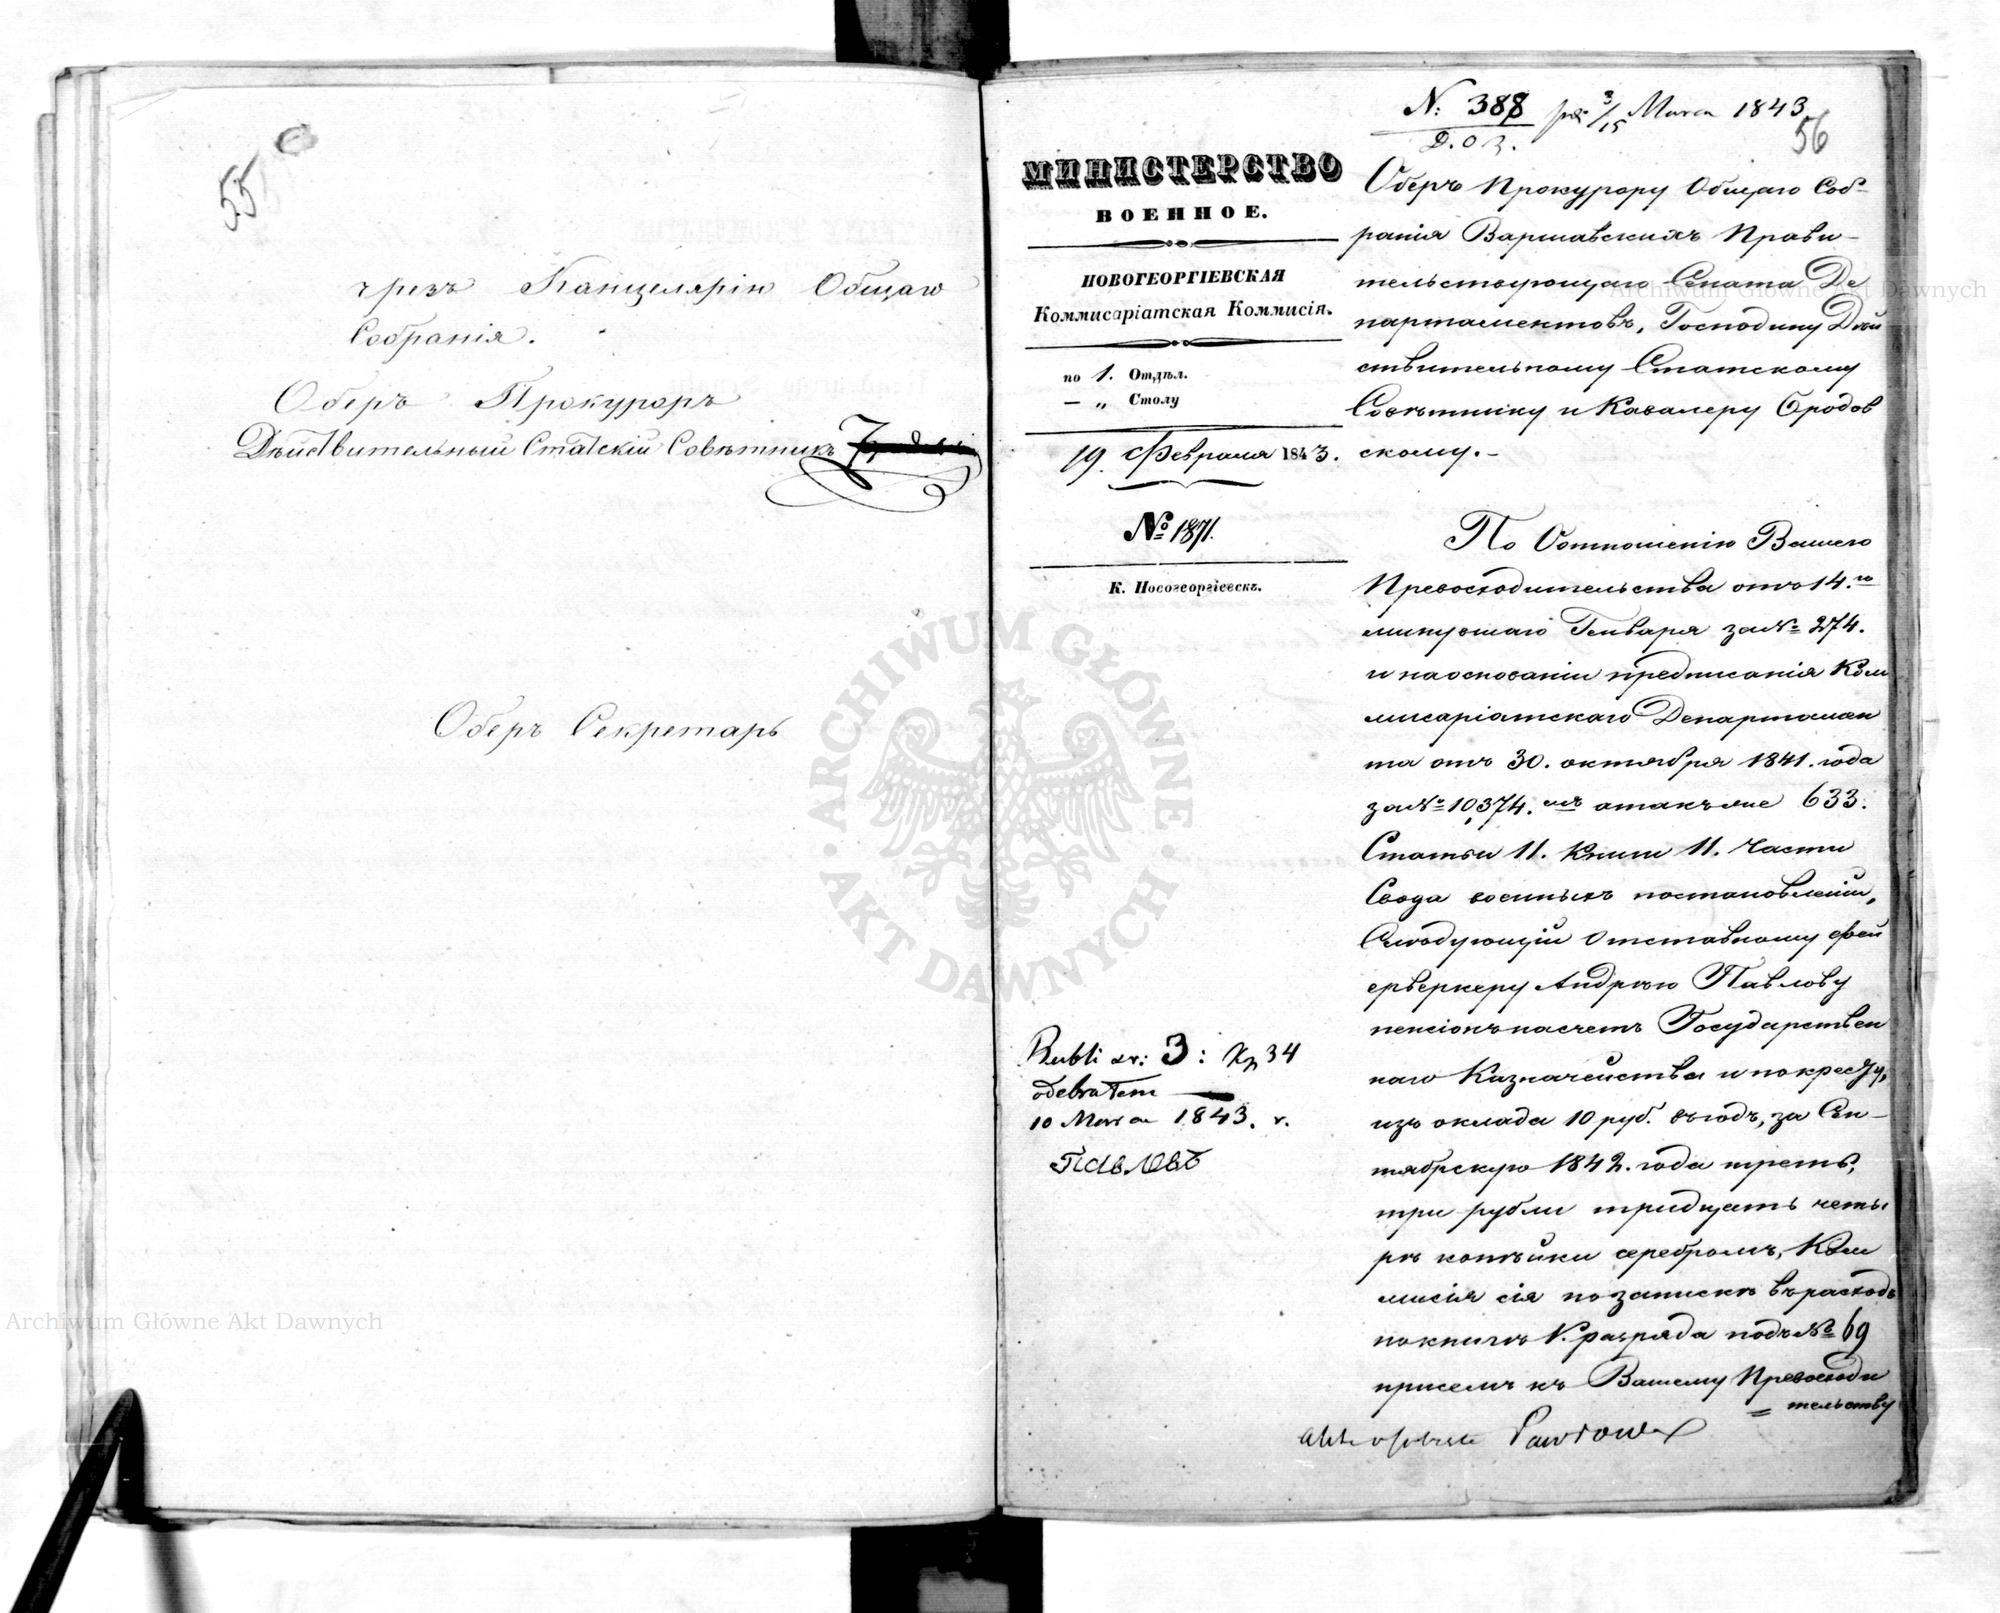 55
чрезъ Канцелярію Общаго
Собранія.
Оберъ Прокуроръ
Дѣйствительный Статскій Совѣтникъ
Оберъ Секретарь
N: 388 3/15 Marca 1843
Д.О З.
56
МИНИСТЕРСТВО
ВОЕННОЕ.
НОВОГЕОРГІЕВСКАЯ
Коммисаріатская Коммисія.
по 1. Отдѣл.
— „ Столу
19. Февраля 1843.
№ 1871.
К. Новогеоргіевскъ.
Оберъ Прокурору Общаго Соб-
ранія Варшавскихъ Прави-
тельствующаго Сената Де
партаментовъ, Господину Дѣй
ствительному Статскому
Совѣтнику и Кавалеру Бродов
скому.-
По Отношенію Вашего
Превосходительства отъ 14.го
минувшаго Генваря за № 274.
и на основаніи предписанія Ком
мисаріатскаго Департамен
та отъ 30. октября 1841. года
за № 10,374.мъ а такъ же 633.
Статьи 11. Книги 11. Части
Свода военныхъ постановленій,
Слѣдующій Отставному фей
ерверкеру Андрѣю Павлову
пенсіонъ на счетъ Государствен
наго Казначейства и по кресту,
изъ оклада 10 руб. въ годъ, за Сен-
тябрскую 1842. года треть,
три рубли тридцать четы
рѣ копѣйки серебромъ, Ком
мисія сія по запискѣ въ расходъ
по книгѣ V. разряда подъ № 69
при семъ къ Вашему Превосходи
тельству
Rubli sr: 3: Kp 34
odebrałem
10 Marca 1843. r.
Павловъ
Pawłowa
ARCHIWUM GŁÓWNE AKT DAWNYCH
Archiwum Główne Akt Dawnych
Archiwum Główne Akt Dawnych